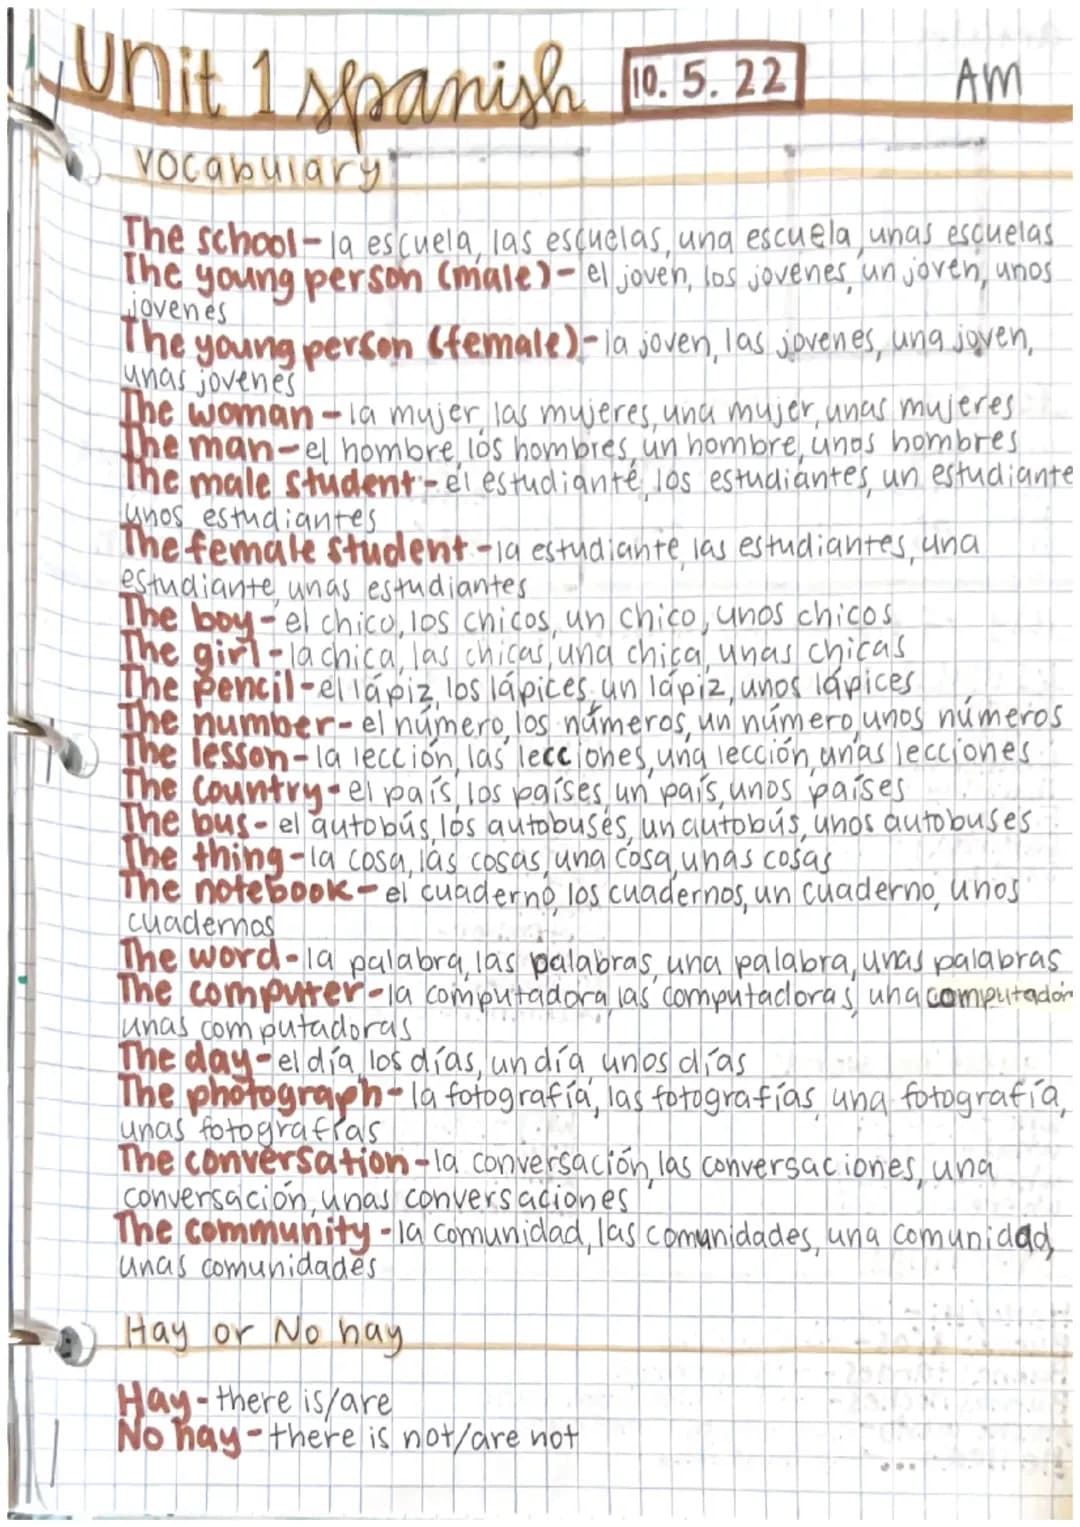 Unit 1 spanish 10. 5. 22 AM
vocabulary
The school - la escuela, las escuelas, una escuela, unas escuelas
The young person (male) - el joven, los jovenes, un joven, unos
jovenes
The young person (female) - la joven, las jovenes, una joven,
unas jovenes
The woman - la mujer, las mujeres, una mujer, unas mujeres
The man - el hombre, los hombres, un hombre, unos hombres
The male student - el estudiante, los estudiantes, un estudiante
unos estudiantes
The female student - la estudiante, las estudiantes, una
estudiante, unas estudiantes
The boy - el chico, los chicos, un chico, unos chicos
The girl - la chica, las chicas, una chica, unas chicas
The pencil - el lápiz, los lápices, un lápiz, unos lápices
The number - el número, los números, un número, unos números
The lesson - la lección, las lecciones, una lección, unas lecciones
The country - el país, los países, un país, unos países
The bus - el autobús, los autobuses, un autobús, unos autobuses
The thing - la cosa, las cosas, una cosa, unas cosas
The notebook - el cuaderno, los cuadernos, un cuaderno, unos
cuadernos
The word - la palabra, las palabras, una palabra, unas palabras
The computer - la computadora, las computadoras, una computador
unas computadoras
The day - el día, los días, un día, unos días
The photograph - la fotografía, las fotografías, una fotografía,
unas fotografías
The conversation - la conversación, las conversaciones, una
conversación, unas conversaciones
The community - la comunidad, las comunidades, una comunidad,
unas comunidades
Hay or No hay
Hay - there is/are
No hay - there is not/are not